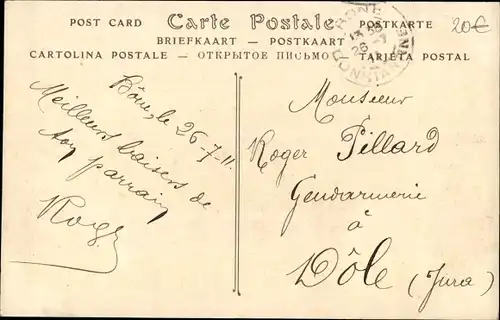 POST CARD Carte Postale POSTKARTE
BRIEFKAART - POSTKAART
CARTOLINA POSTALE - ОТКРЫТОЕ ПИСЬМО - TARJETA POSTAL
20€
Bône, le 26-7-11.
Meilleurs baisers de
ton parrain
Roger
Monsieur
Roger Pillard
Gendarmerie
à
Dôle (Jura)